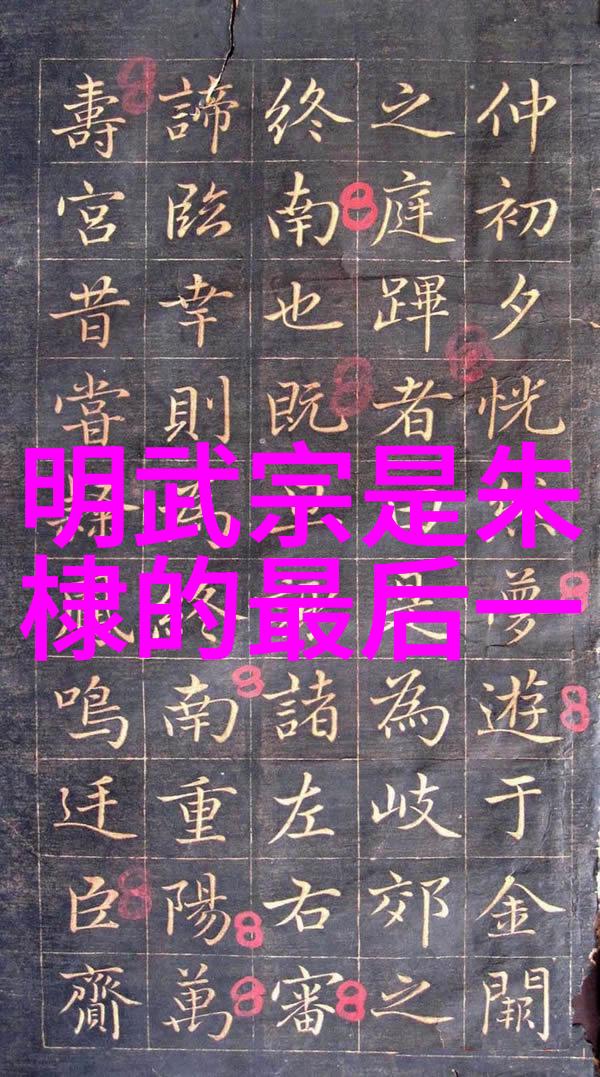 明武宗是朱
棣的最后一
仲初夕恍夢遊于金闕
之庭蹕者是為岐郊之
終南也既諸左右審
諦臨幸則終南重陽萬
壽宮昔嘗鳴廷臣齎